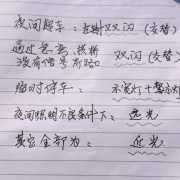 夜间超车: 左转 双闪 (交替)
通过急弯, 拱桥
没有信号灯路口 双闪 (交替)
临时停车: 示宽灯+警示灯
夜间照明不良条件下: 远光
其它全部为: 近光